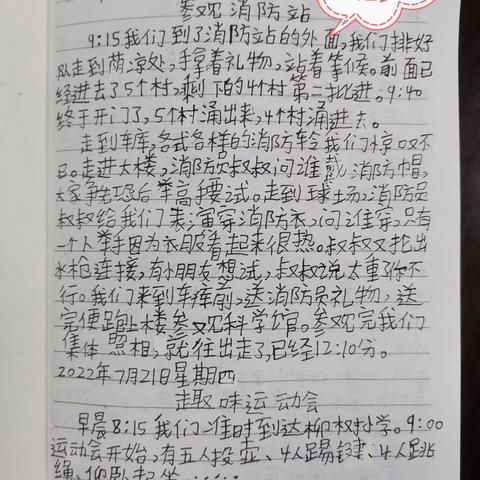 参观消防站
9:15我们到了消防站的外面,我们排好
队走到荫凉处,手拿着礼物,站着等候。前面已
经进去了5个村,剩下的4个村第二批进。9:40
终于开门了,5个村涌出来,4个村涌进去。
走到车库,各式各样的消防车令我们惊叹不
已。走进大楼,消防员叔叔问谁戴消防帽,
大家争先恐后举高手要试。走到球场,消防员
叔叔给我们表演穿消防衣,问谁穿,只有
一个人举手因为衣服看起来很热。叔叔又拖出
水枪连接,有小朋友想试,叔叔说太重了你不
行。我们来到车库前,送消防员礼物,送
完便跑上楼参观科学馆。参观完我们
集体照相,就往出走了,已经12:10分。
2022年7月21日星期四
趣味运动会
早晨8:15我们准时到达柳杈村小学。9:00
运动会开始,有五人投壶、4人踢毽、4人跳
绳、仰卧起坐……